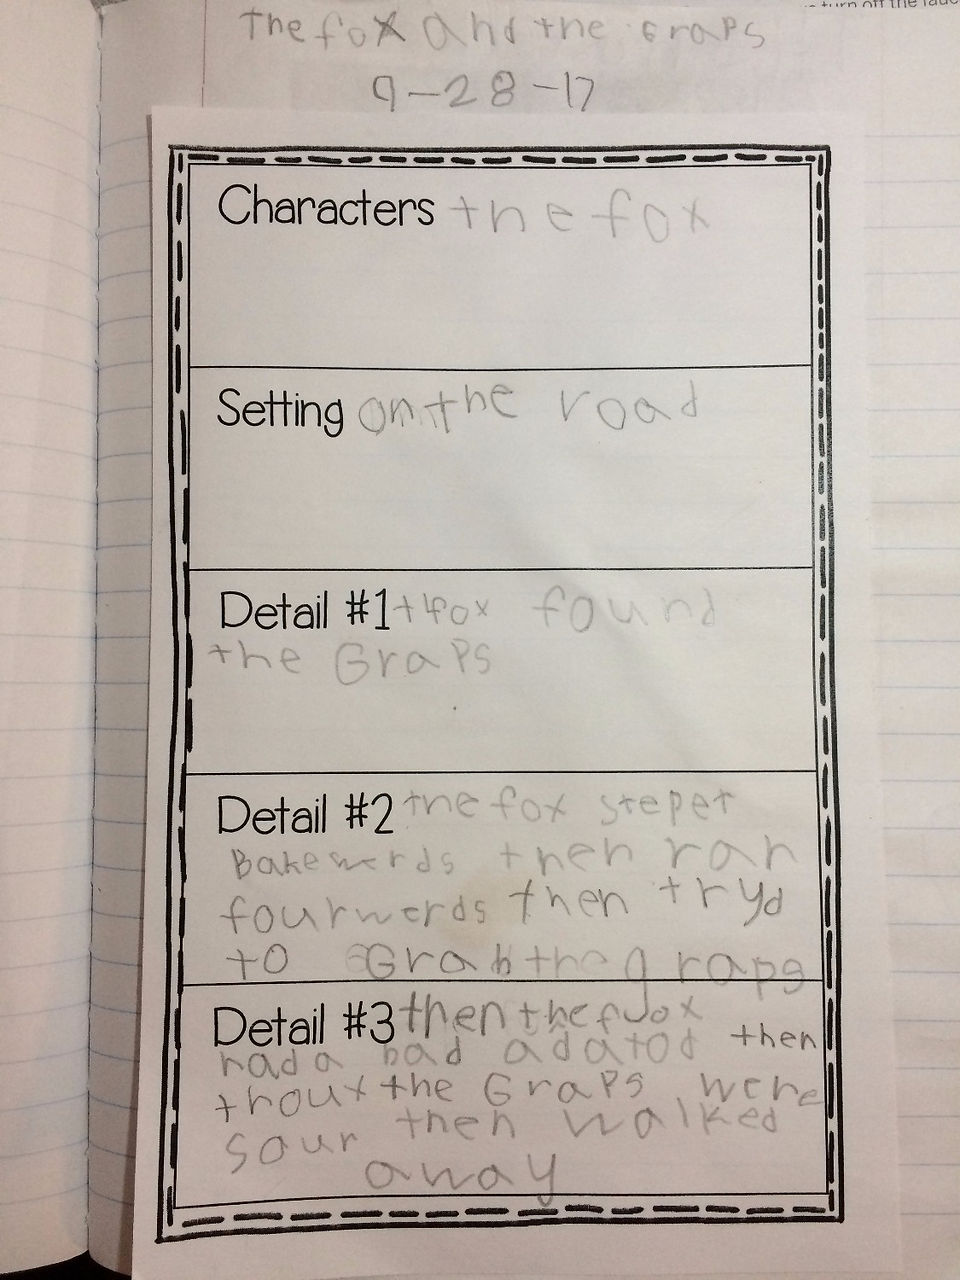 turn off the fauc
The fox and the Graps
9-28-17
Characters the fox
Setting on the road
Detail #1 fox found
the Graps
Detail #2 the fox stepet
Bakewerds then ran
fourwerds then tryd
to Grab the graps
Detail #3 then the fox
had a bad adatod then
the Graps were
sour then walked
away